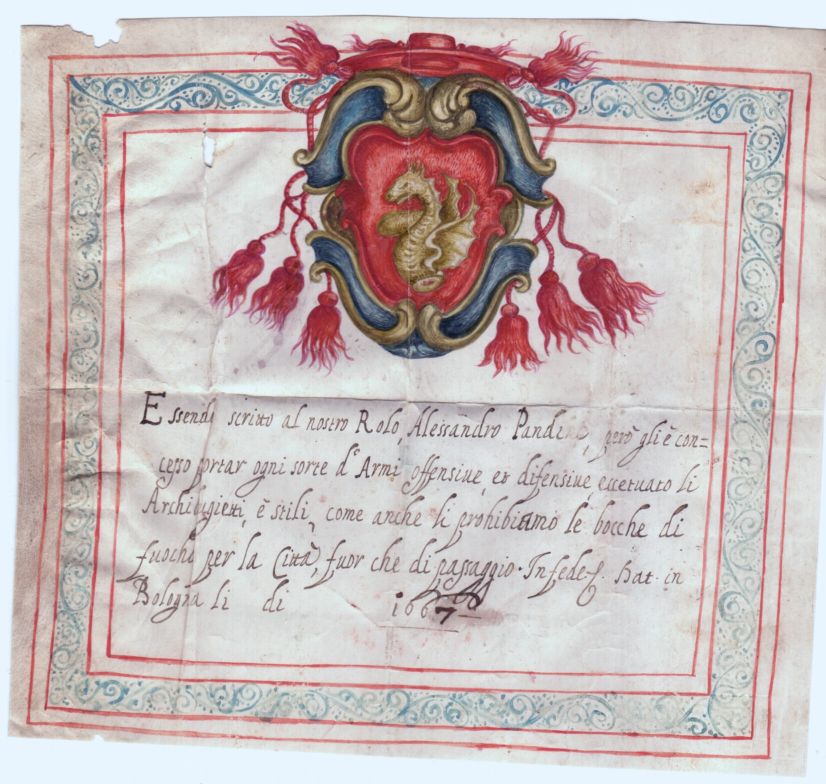 Essendo scritto al nostro Rolo, Alessandro Pandini, però gli è con=
cesso portar ogni sorte d'Armi offensive, et difensive, eccetuato li
Archibugietti, è stili, come anche li prohibiamo le bocche di
fuocho per la Città, fuor che di passaggio. In fede &. Dat. in
Bologna li di 1667